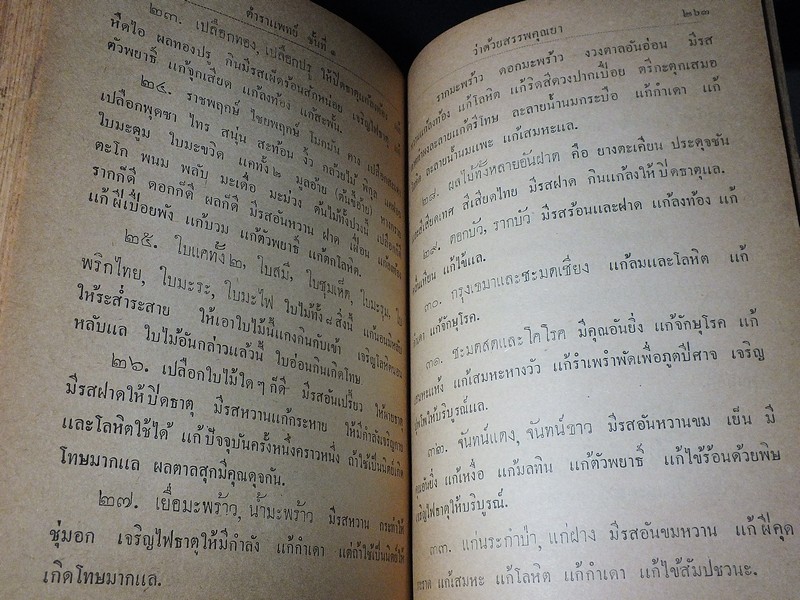 ตำราแพทย์ ชั้นที่ ๑
๒๓. เปลือกทอง, เปลือกปรู ให้ปิดธาตุแก้ลงท้อง แก้
หืดไอ ผลทองปรุ กินมีรสเผ็ดร้อนสักหน่อย เจริญไฟธาตุ แก้
ตัวพยาธิ์ แก้จุกเสียด แก้ลงท้อง แก้สะพั้น.
๒๔. ราชพฤกษ์ ไชยพฤกษ์ โมกมัน คาง
เปลือกพุดซา ไทร สนุ่น สะท้อน งิ้ว กล้วยไม้ พิกุล
ใบมะตูม ใบมะขวิด แคทั้ง ๒ มูลอ้าย (ต้นขี้อ้าย)
ตะโก พนม พลับ มะเดื่อ มะม่วง ต้นไม้ทั้งปวงนี้ เปลือกก็ดี
รากก็ดี ดอกก็ดี ผลก็ดี มีรสอันหวาน ฝาด เฝื่อน แก้ลงท้อง
แก้ฝีเปื่อยพัง แก้บวม แก้ตัวพยาธิ์ แก้ตกโลหิต.
๒๕. ใบแคทั้ง ๒, ใบสมี, ใบชุมเห็ด, ใบมะรุม, ใบ
พริกไทย, ใบมะระ, ใบมะไฟ ใบไม้ทั้ง ๘ สิ่งนี้ แก้นอนมิหลับ
ให้ระส่ำระสาย ให้เอาใบไม้นี้แกงกินกับเข้า เจริญโลหิตนอน
หลับแล ใบไม้อันกล่าวแล้วนี้ ใบอ่อนกินเกิดโทษ
๒๖. เปลือกใบไม้ใด ๆ ก็ดี มีรสอันเปรี้ยว ให้ผายธาตุ
มีรสฝาดให้ปิดธาตุ มีรสหวานแก้กระหาย ให้มีกำลังเจริญกาย
และโลหิตใช้ได้ แก้ปัจจุบันครั้งหนึ่งคราวหนึ่ง ถ้าใช้เป็นนิตย์เกิด
โทษมากแล ผลตาลสุกมีคุณดุจกัน.
๒๗. เยื่อมะพร้าว, น้ำมะพร้าว มีรสหวาน กระทำให้
ชุ่มอก เจริญไฟธาตุให้มีกำลัง แก้กำเดา แต่ถ้าใช้เป็นนิตย์ให้
เกิดโทษมากแล.
ว่าด้วยสรรพคุณยา ๒๖๓
รากมะพร้าว ดอกมะพร้าว งวงตาลอันอ่อน มีรส
แก้ลงท้อง แก้โลหิต แก้ริดสีดวงปากเปื่อย ตรีกะตุกเสมอ
ละลายแก้ตรีโทษ ละลายน้ำนมกระบือ แก้กำเดา แก้
ละลายน้ำนมแพะ แก้เสมหะแล.
๒๘. ผลไม้ทั้งหลายอันฝาด คือ ยางตะเคียน ประดุจชัน
สีเสียดเทศ สีเสียดไทย มีรสฝาด กินแก้ลงให้ปิดธาตุแล.
๒๙. ดอกบัว, รากบัว มีรสร้อนและฝาด แก้ลงท้อง แก้
แก้ไข้แล.
๓๐. กรุงเขมาและชะมดเชียง แก้ลมและโลหิต แก้
แก้จักษุโรค.
๓๑. ชะมดสดและโคโรค มีคุณอันยิ่ง แก้จักษุโรค แก้
แก้เสมหะหางวัว แก้รำเพรำพัดเพื่อภูตปีศาจ เจริญ
ให้บริบูรณ์แล.
๓๒. จันทน์แดง, จันทน์ขาว มีรสอันหวานขม เย็น มี
คุณอันยิ่ง แก้เหงื่อ แก้มลทิน แก้ตัวพยาธิ์ แก้ไข้ร้อนด้วยพิษ
เจริญไฟธาตุให้บริบูรณ์.
๓๓. แก่นระกำป่า, แก่ฝาง มีรสอันขมหวาน แก้ฝีคุด
แก้เสมหะ แก้โลหิต แก้กำเดา แก้ไข้สัมปชวนะ.